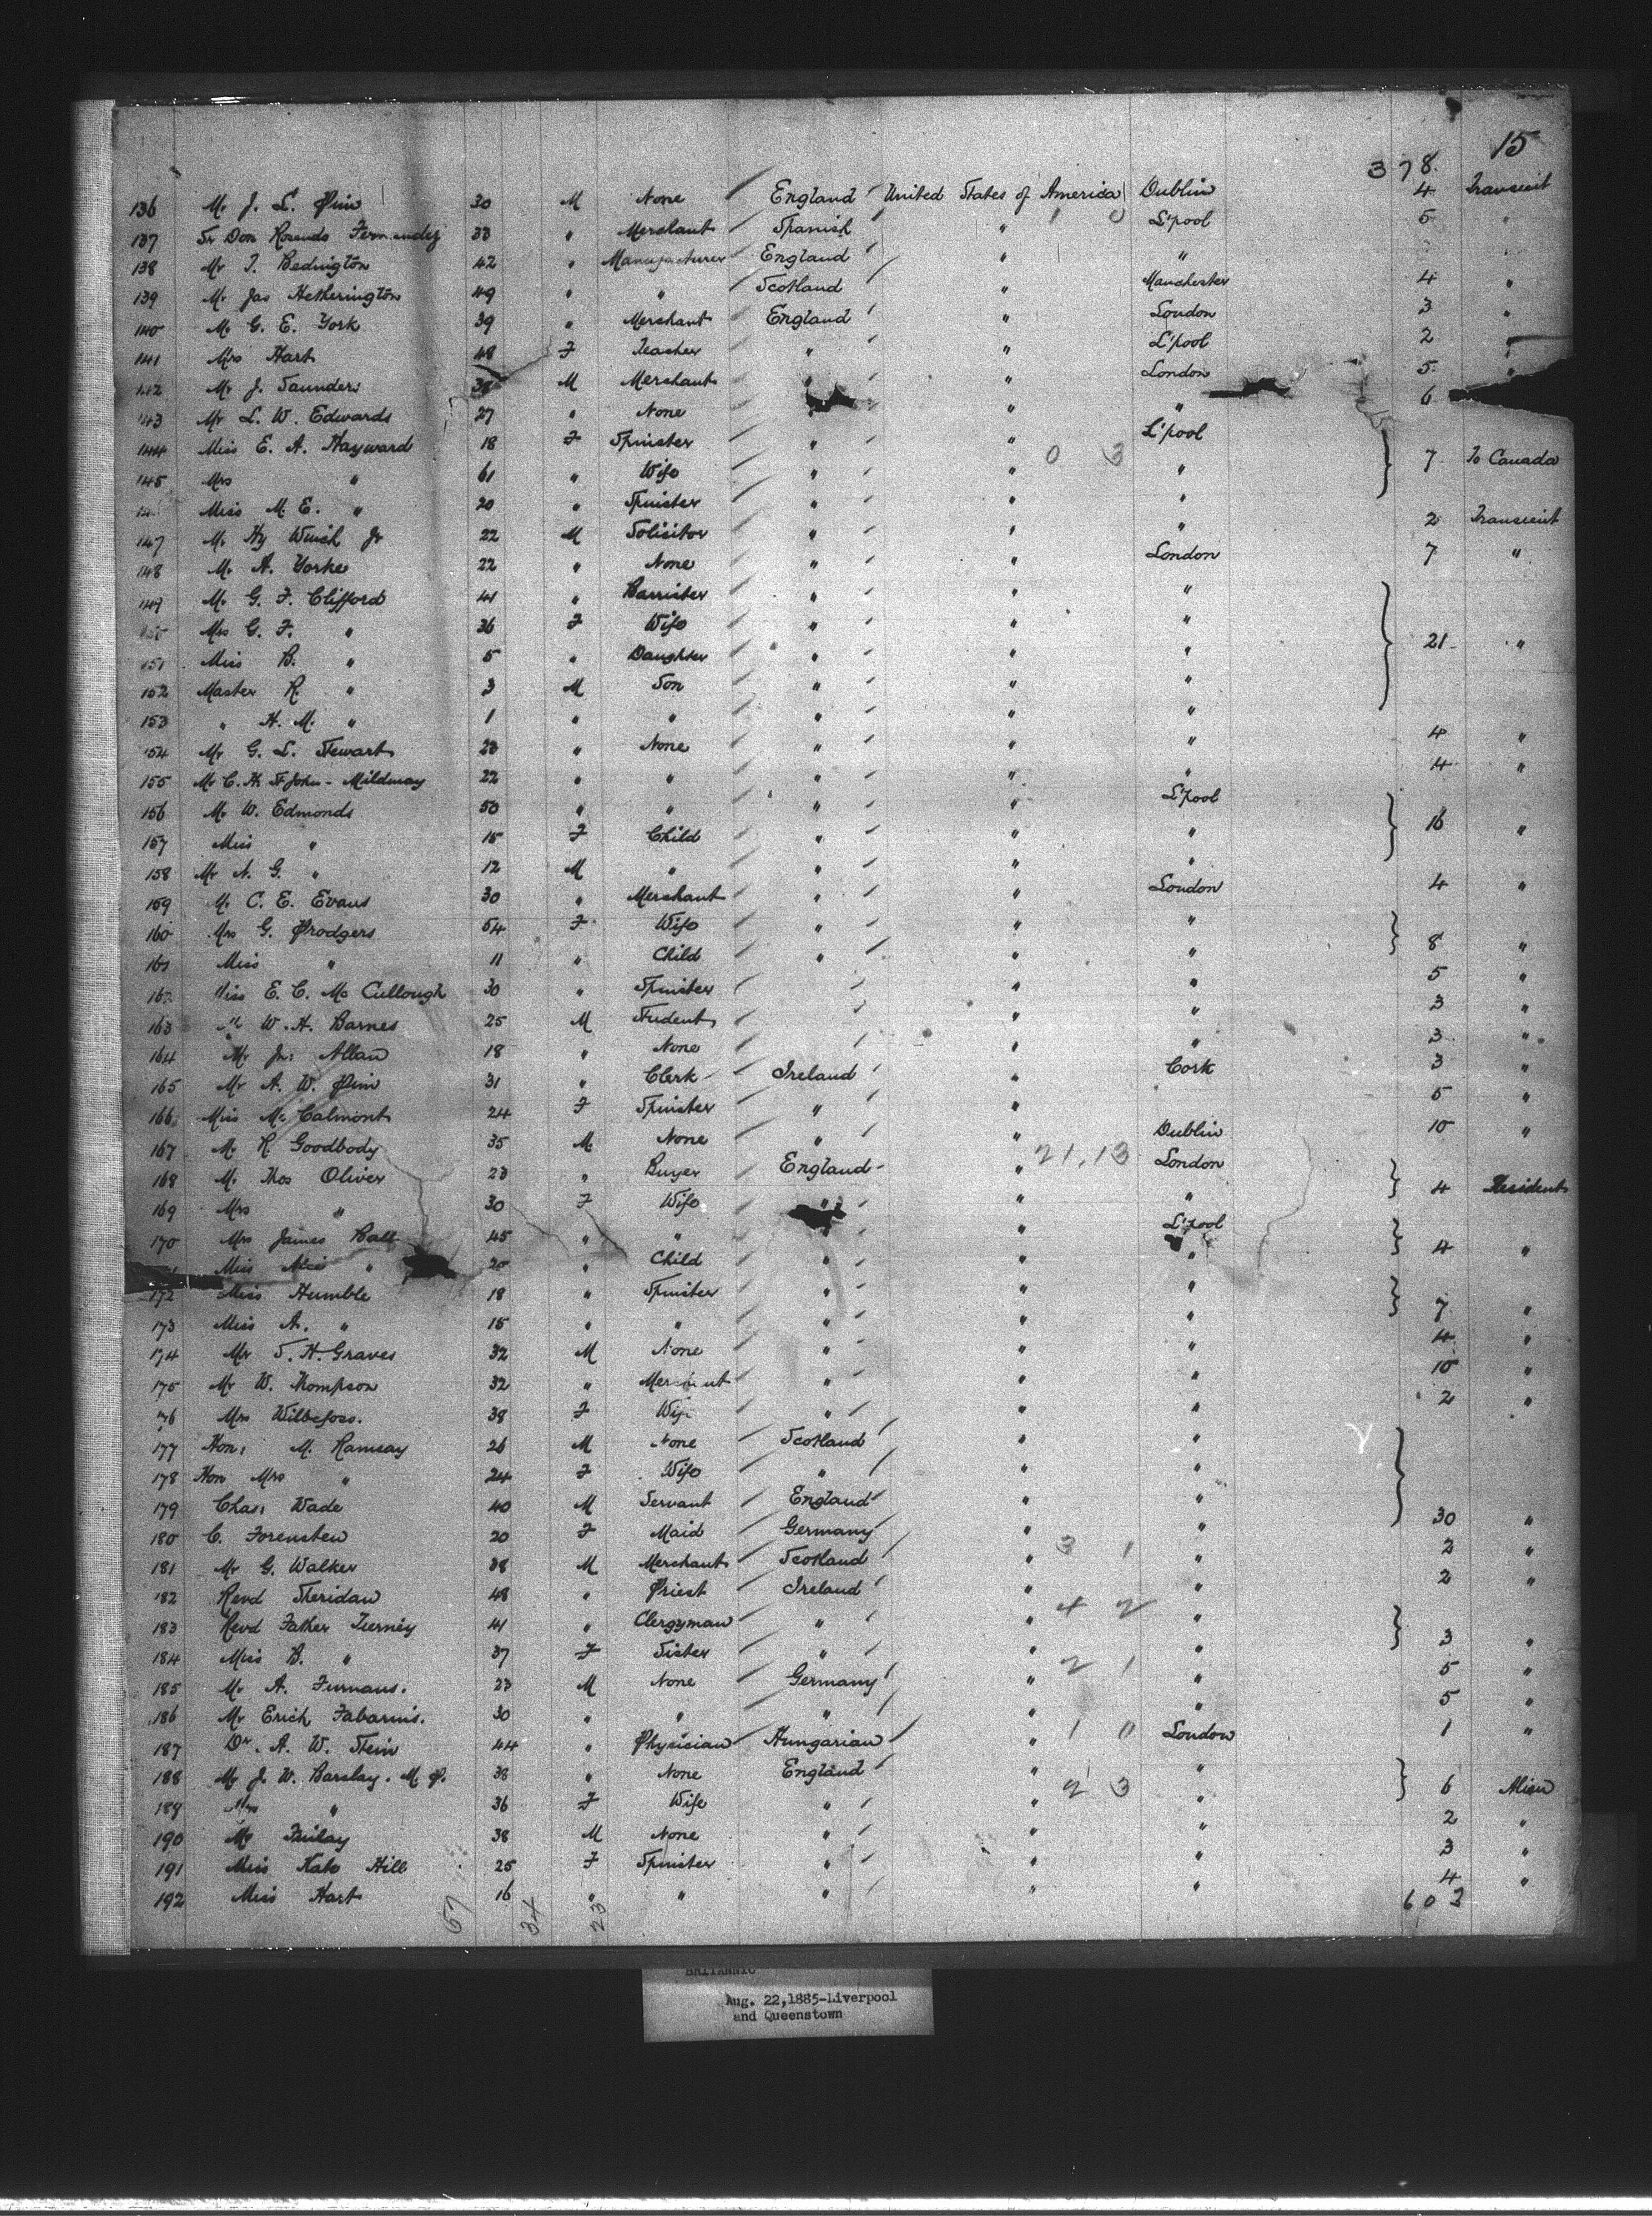 15
378
136 Mr J. L. Pim 30 M None England United States of America Dublin 4 Transient
137 Sr Don Rosendo Fernandez 33 " Merchant Spanish " 1 0 L'pool 5 "
138 Mr T. Bedington 42 " Manufacturer England " "
139 Mr Jas Hetherington 49 " " Scotland " Manchester 4 "
140 Mr G. E. York 39 " Merchant England " London 3 "
141 Mrs Hart 48 F Teacher " " L'pool 2 "
142 Mr J. Saunders M Merchant " " London 5 "
143 Mr L. W. Edwards 27 " None " " 6
144 Miss E. A. Hayward 18 F Spinster " " 0 3 L'pool
145 Mrs " 61 " Wife " " " 7 To Canada
Miss M. E. " 20 " Spinster " " "
147 Mr Hy Winch Jr 22 M Solicitor " " " 2 Transient
148 Mr A. Yorke 22 " None " " London 7 "
149 Mr G. F. Clifford 41 " Barrister " " "
Mrs G. F. " 36 F Wife " " "
151 Miss B. " 5 " Daughter " " " 21 "
152 Master R. " 3 M Son " " "
153 " H. M. " 1 " " " " "
154 Mr G. L. Stewart 23 " None " " " 4 "
155 Mr C. H. St John-Mildmay 22 " " " " " 4 "
156 Mr W. Edmonds 50 " " " " L'pool
157 Miss " 15 F Child " " " 16 "
158 Mr A. G. " 12 M " " " "
159 Mr C. E. Evans 30 " Merchant " " London 4 "
160 Mrs G. Prodgers 54 F Wife " " "
161 Miss " 11 " Child " " " 8 "
162 Miss E. C. McCullough 30 " Spinster " " 5 "
163 Mr W. H. Barnes 25 M Student " " 3 "
164 Mr Jn: Allan 18 " None " " 3 "
165 Mr A. W. Pim 31 " Clerk Ireland " Cork 3 "
166 Miss McCalmont 24 F Spinster " " 5 "
167 Mr R. Goodbody 35 M None " " Dublin 10 "
168 Mr Thos Oliver 23 " Buyer England " 21.13 London
169 Mrs " 30 F Wife " " " 4 Resident
170 Mrs James Ball 45 " " " L'pool
Miss " 20 " Child " " " 4 "
172 Miss Humble 18 " Spinster " " "
173 Miss A. " 15 " " " " " 7 "
174 Mr S. H. Graves 32 M None " " " 4 "
175 Mr W. Thompson 32 " Merchant " " " 10 "
176 Mrs Wilbefoss. 38 F Wife " " " 2 "
177 Hon: M. Ramsay 26 M None Scotland " "
178 Hon Mrs " 24 F Wife " " "
179 Chas: Wade 40 M Servant England " "
180 C. Forensten 20 F Maid Germany " " 30 "
181 Mr G. Walker 38 M Merchant Scotland " 3 1 " 2 "
182 Revd Sheridan 48 " Priest Ireland " " 2 "
183 Revd Father Tierney 41 " Clergyman " " 4 2 "
184 Miss B. " 37 F Sister " " " 3 "
185 Mr A. Furmans. 23 M None Germany " 2 1 " 5 "
186 Mr Erich Fabarius. 30 " " " " " 5 "
187 Dr. A. W. Stein 44 " Physician Hungarian " 1 0 London 1 "
188 Mr J. W. Barclay. M. P. 38 " None England " "
189 Mrs " 36 F Wife " " 2 3 " 6 Alien
190 Mr Finlay 38 M None " " " 2 "
191 Miss Kate Hill 25 F Spinster " " " 3 "
192 Miss Hart 16 " " " " " 4 "
57 34 23 603
BRITANNIC
Aug. 22,1885-Liverpool
and Queenstown